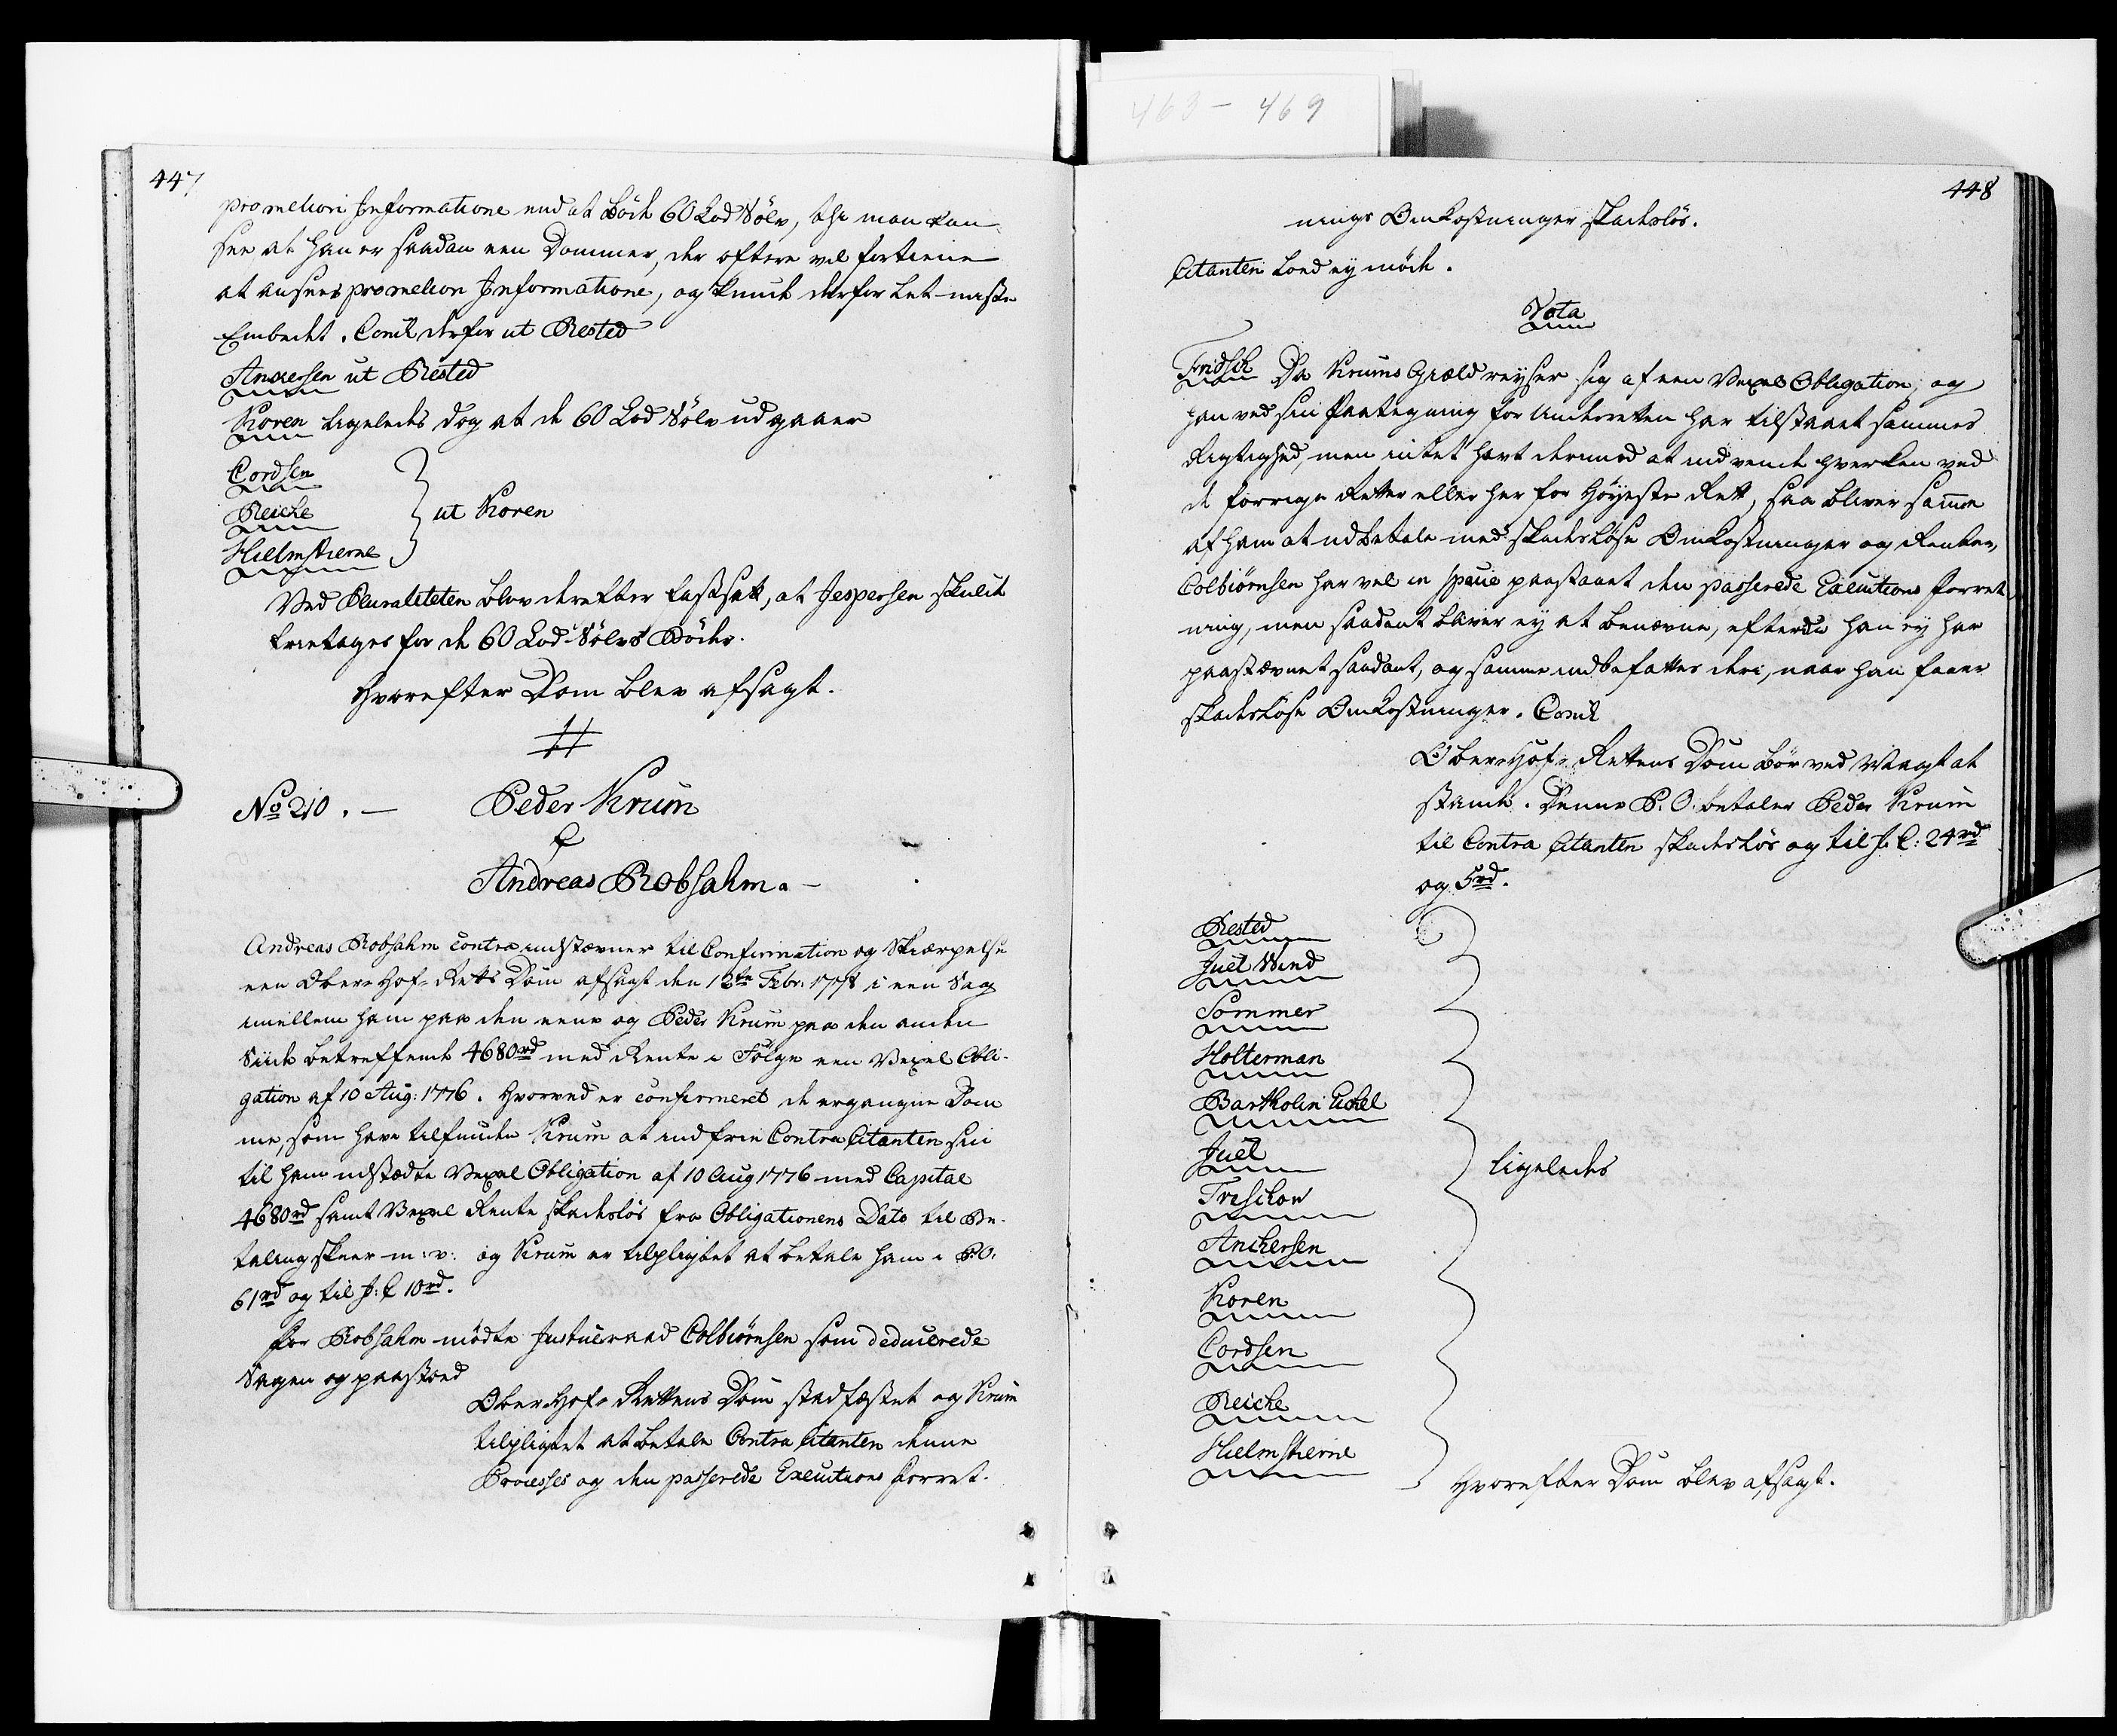 463 - 469
447
pro meliori Informatione end at bøde 60 Lod Sølv, thi man kan
see at han er saadan een Dommer, der oftere vel fortiene
at ansees pro meliori Informatione, og kunde derfor let miste
Embedet. Concl. derfor ut Rested
Anchersen ut Rested
Koren ligeledes dog at de 60 Lod Sølv udgaaer
Cordsen
Reiche
ut Koren
Hielmstierne
Ved Pluraliteten blev derefter fastsatt, at Jespersen skulde
frietages for de 60 Lod Sølvs Bøder.
Hvorefter Dom blev afsagt.
No 210. —
Peder Krum
Andreas Robsahm. —
Andreas Robsahm contraindstævner til Confirmation og Skiærpelse
een Ober-Hof-Retts Dom afsagt den 12te Febr. 1778 i een Sag
imellem ham paa den eene og Peder Krum paa den anden
Siide betreffende 4680rd med Rente i Følge een Vexel Obli-
gation af 10 Aug: 1776. Hvorved er confirmeret de ergangne Dom
me, som have tilfunden Krum at indfrie Contra Citanten sin
til ham udstædte Vexel Obligation af 10 Aug 1776 med Capital
4680rd samt Vexel Rente skadesløs fra Obligationens Dato til Be-
taling skeer m: v: og Krum er tilpligtet at betale ham i P.O.
61rd og til J: C 10rd.
For Robsahm mødte Justiceraad Colbiørnsen som deducerede
Sagen og paastoed
Ober-Hof-Rettens Dom stadfæstet og Krum
tilpligtet at betale Contra Citanten denne
Processes og den passerede Executions Forret-
448
nings Omkostninger skadesløs.
Citanten loed ey møde.
Vota
Fridsch Da Krums Gield reyser sig af een Vexel Obligation, og
han ved sin Paategning for Underretten har tilstaaet sammes
Rigtighed, men intet havt derimod at indvende hverken ved
de forrige Retter eller her for Høyeste Rett, saa bliver samme
af ham at udbetale med skadesløse Omkostninger og Renter,
Colbiørnsen har vel in specie paastaaet den passerede Executions Forret
ning, men saadant bliver ey at benævne, efterdi han ey har
paastævnet saadant, og samme indbefattes deri, naar han faaer
skadesløse Omkostninger. Concl
Ober-Hof-Rettens Dom bør ved Magt at
stande. Denne P. O. betaler Peder Krum
til Contra Citanten skadesløs og til J. C: 24rd
og 5rd.
Rested
Juel Wind
Sommer
Holterman
Bartholin Eichel
Juel
ligeledes
Treschow
Anchersen
Koren
Cordsen
Reiche
Hielmstierne
Hvorefter Dom blev afsagt.